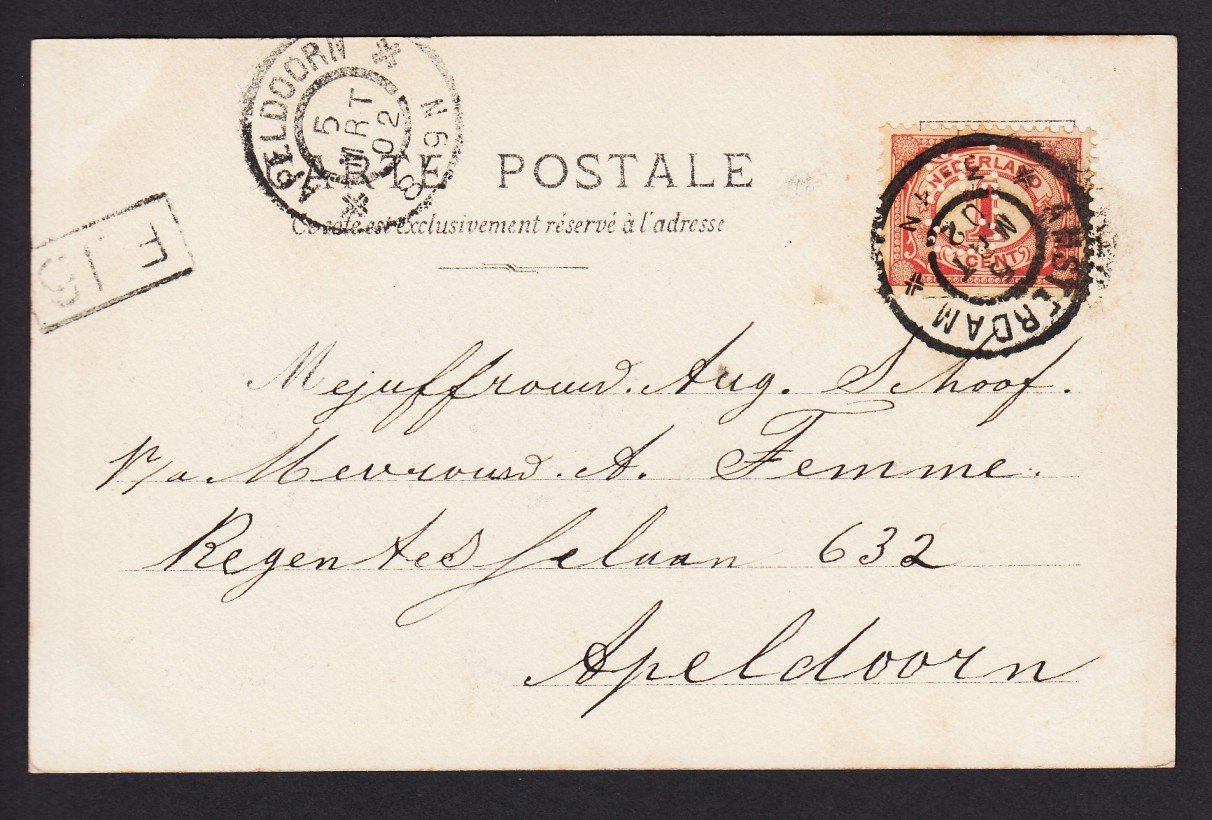 APELDOORN
5 MRT 02
8-9 N
CARTE POSTALE
Ce côté est exclusivement réservé à l'adresse
NEDERLAND
1
CENT
AMSTERDAM
5 MRT 02
Mejuffrouw. Aug. Schoof.
p/a Mevrouw. A. Femme.
Regentesselaan 632
Apeldoorn